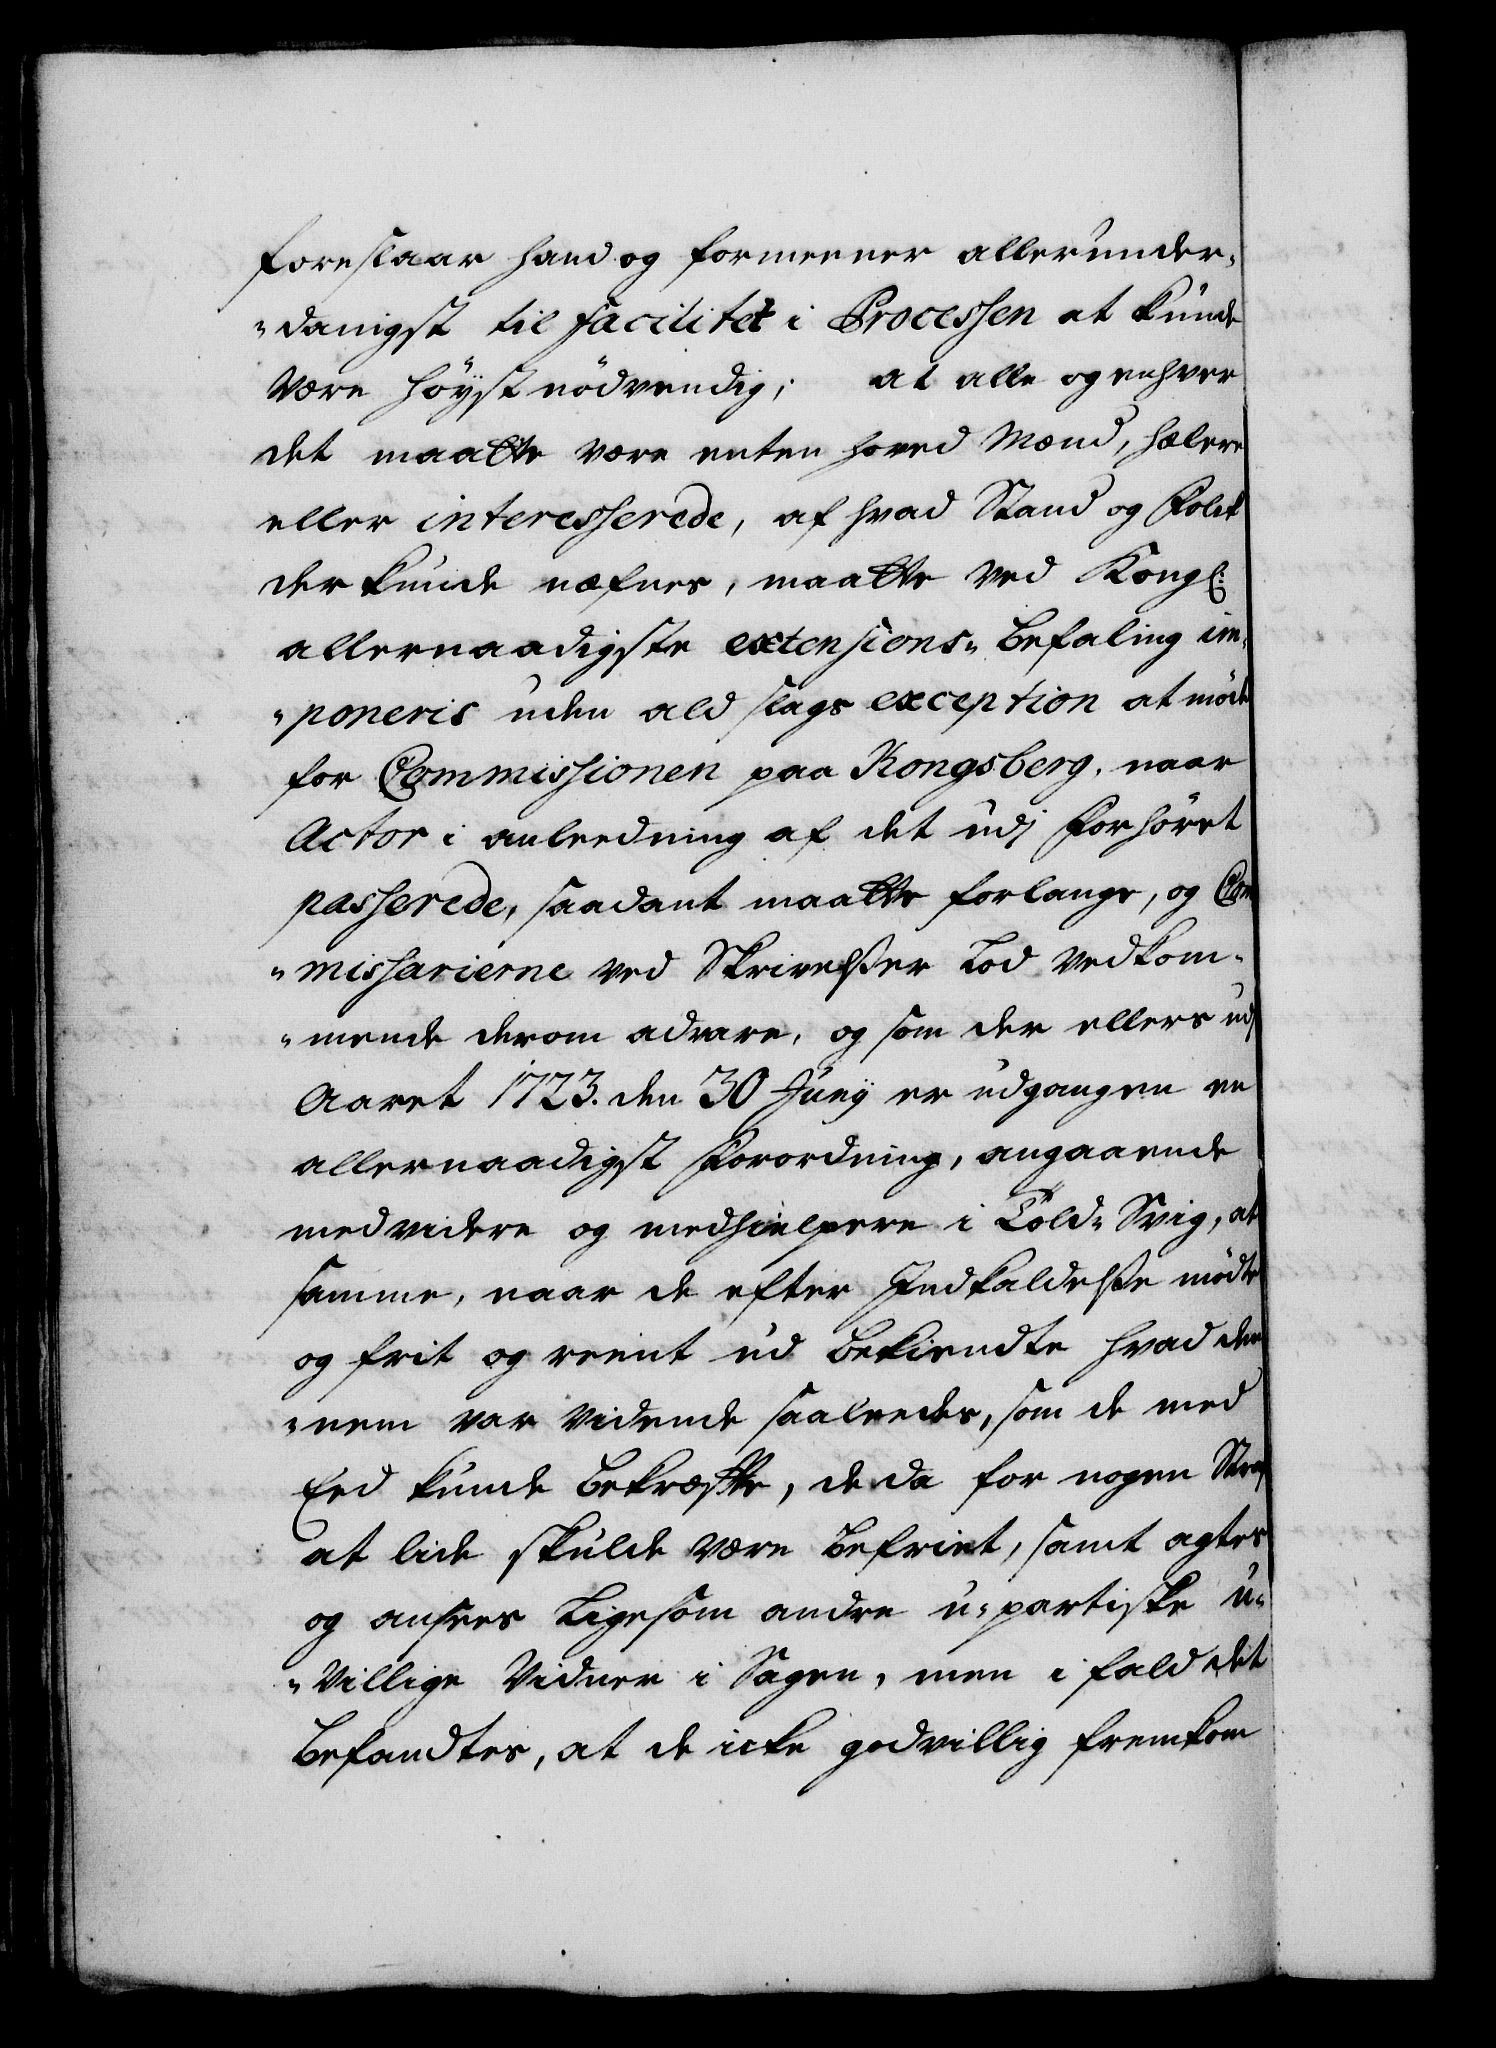 foreslaar hand og formeener allerunder-
-danigst til facilitet i Processen at kunde
være höyst nödvendig; at alle og enhver
det maatte være enten hoved Mænd, hælere
eller interesserede, af hvad Stand og Folck
der kunde næfnes, maatte ved Kongl:
allernaadigste extensions- Befaling im-
-poneris uden ald slags exception at möde
for Commissionen paa Kongsberg, naar
Actor i anleedning af det udj Forhöret
passerede, saadant maatte forlange, og Com
-missarierne ved Skrivelser Lod vedkom-
-mende derom advare, og som der ellers udj
Aaret 1723. den 30 Junij er udgangen en
allernaadigst Forordning, angaaende
medvidere og medhielpere i Told- Svig, at
samme, naar de efter Indkaldelse mödte
og frit og reent ud bekiendte hvad den
-nem var vidende saaleedes, som de med
Eed kunde bekræfte, de da for nogen Straf
at lide skulde være befriet, samt agtes
og ansees Ligesom andre u-partiske u-
-villige Vidner i Sagen, men i fald det
befandtes, at de icke godvillig fremkom